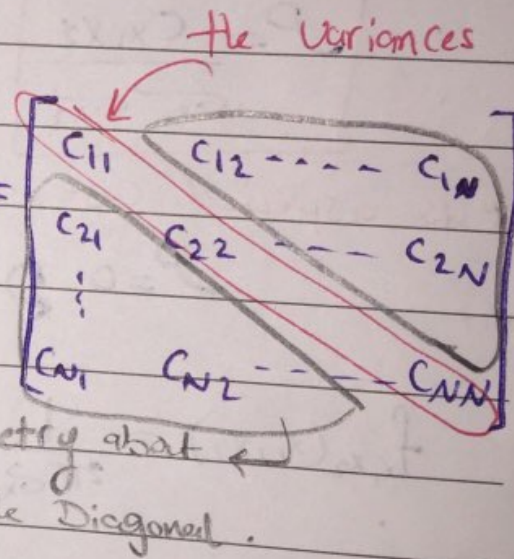 the variances
C11 C12 ---- C1N
=
C21 C22 --- C2N
CN1 CN2 ----- CNN
etry about
e Diagonal.